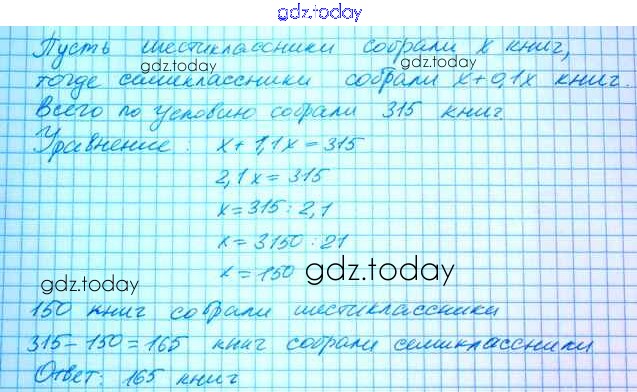 gdz.today
Пусть шестиклассники собрали x книг,
gdz.today gdz.today
тогде семиклассники собрали x+0,1x книг.
Всего по условию собрали 315 книг.
Уравнение: x+1,1x=315
2,1x=315
x=315:2,1
x=3150:21
x=150
gdz.today gdz.today
150 книг собрали шестиклассники
315-150=165 книг собрали семиклассники
Ответ: 165 книг